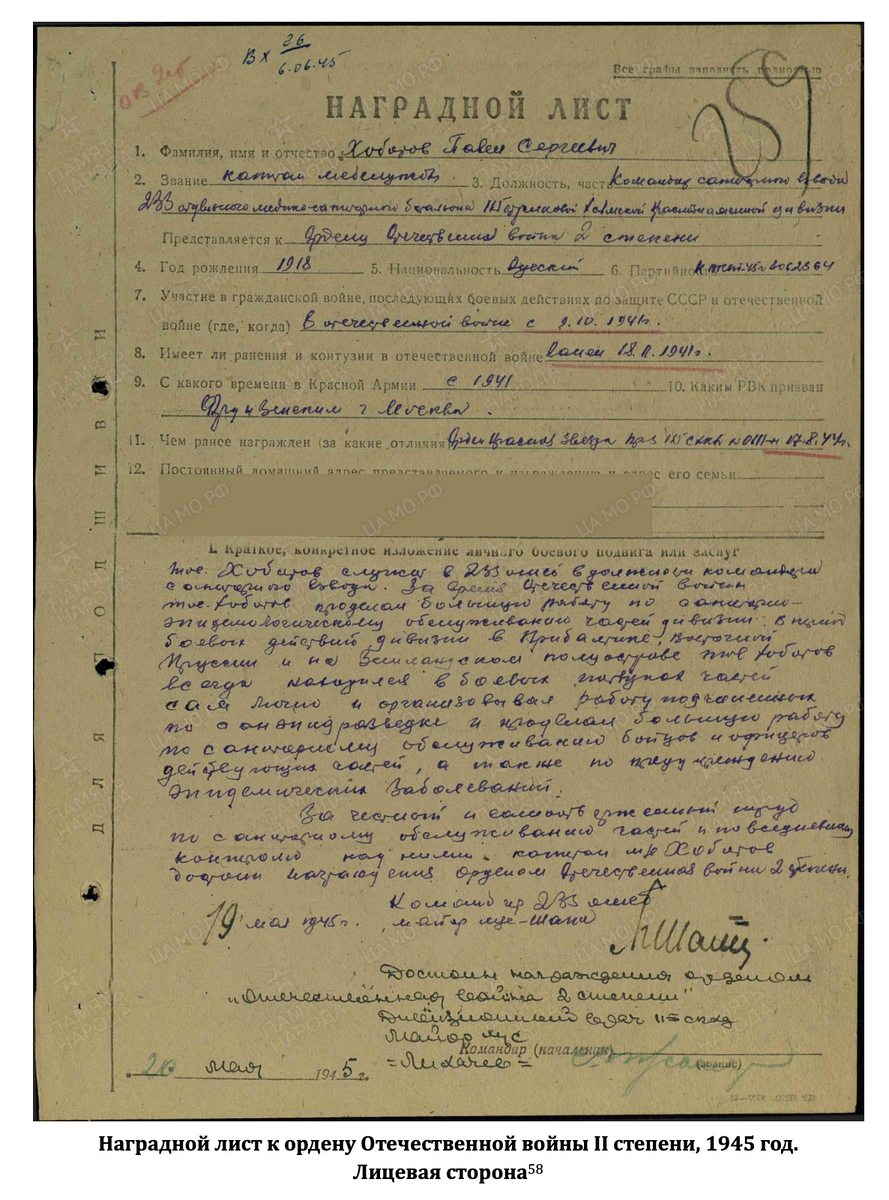 Вх 26
6.06.45
Все графы заполнять полностью
НАГРАДНОЙ ЛИСТ
1. Фамилия, имя и отчество Хоботов Павел Сергеевич
2. Звание капитан медслужбы 3. Должность, часть Командир санитарного взвода
233 отдельного медико-санитарного батальона стрелковой Краснознаменной дивизии
Представляется к Ордену Отечественная война 2 степени
4. Год рождения 1918 5. Национальность Русский 6. Партийность
7. Участие в гражданской войне, последующих боевых действиях по защите СССР и отечественной
войне (где, когда) В отечественной войне с 9.10.1941г.
8. Имеет ли ранения и контузии в отечественной войне ранен 1941г.
9. С какого времени в Красной Армии с 1941 10. Каким РВК призван
г. Москва.
11. Чем ранее награжден (за какие отличия) Орден Красная Звезда 17.8.44г.
12. Постоянный домашний адрес представляемого к награждению и адрес его семьи
ДЛЯ ПОДШИВКИ
I. Краткое, конкретное изложение личного боевого подвига или заслуг
тов. Хоботов служит в 233 омсб в должности командира
санитарного взвода. За время Отечественной войны
тов. Хоботов проделал большую работу по санитарно-
эпидемологическому обслуживанию частей дивизии. В период
боевых действий дивизии в Прибалтике, Восточной
Пруссии и на Земландском полуострове тов Хоботов
всегда находился в боевых порядках частей
сам лично и организовывал работу подчиненных
по санэпидразведке и проделал большую работу
по санитарному обслуживанию бойцов и офицеров
действующих частей, а также по предупреждению
эпидемических заболеваний.
За честный и самоотверженный труд
по санитарному обслуживанию частей и повседневный
контроль над ними капитан м/с Хоботов
достоин награждения орденом Отечественная война 2 степени.
Командир 233 омсб
19 мая 1945г. майор
Достоин награждения орденом
"Отечественная война 2 степени"
Дивизионный врач 11 скхд
Майор м/с
Командир (начальник)
=Лихачев= (звание)
20 мая 1945 г.
ЦА МО РФ
Наградной лист к ордену Отечественной войны II степени, 1945 год.
Лицевая сторона58